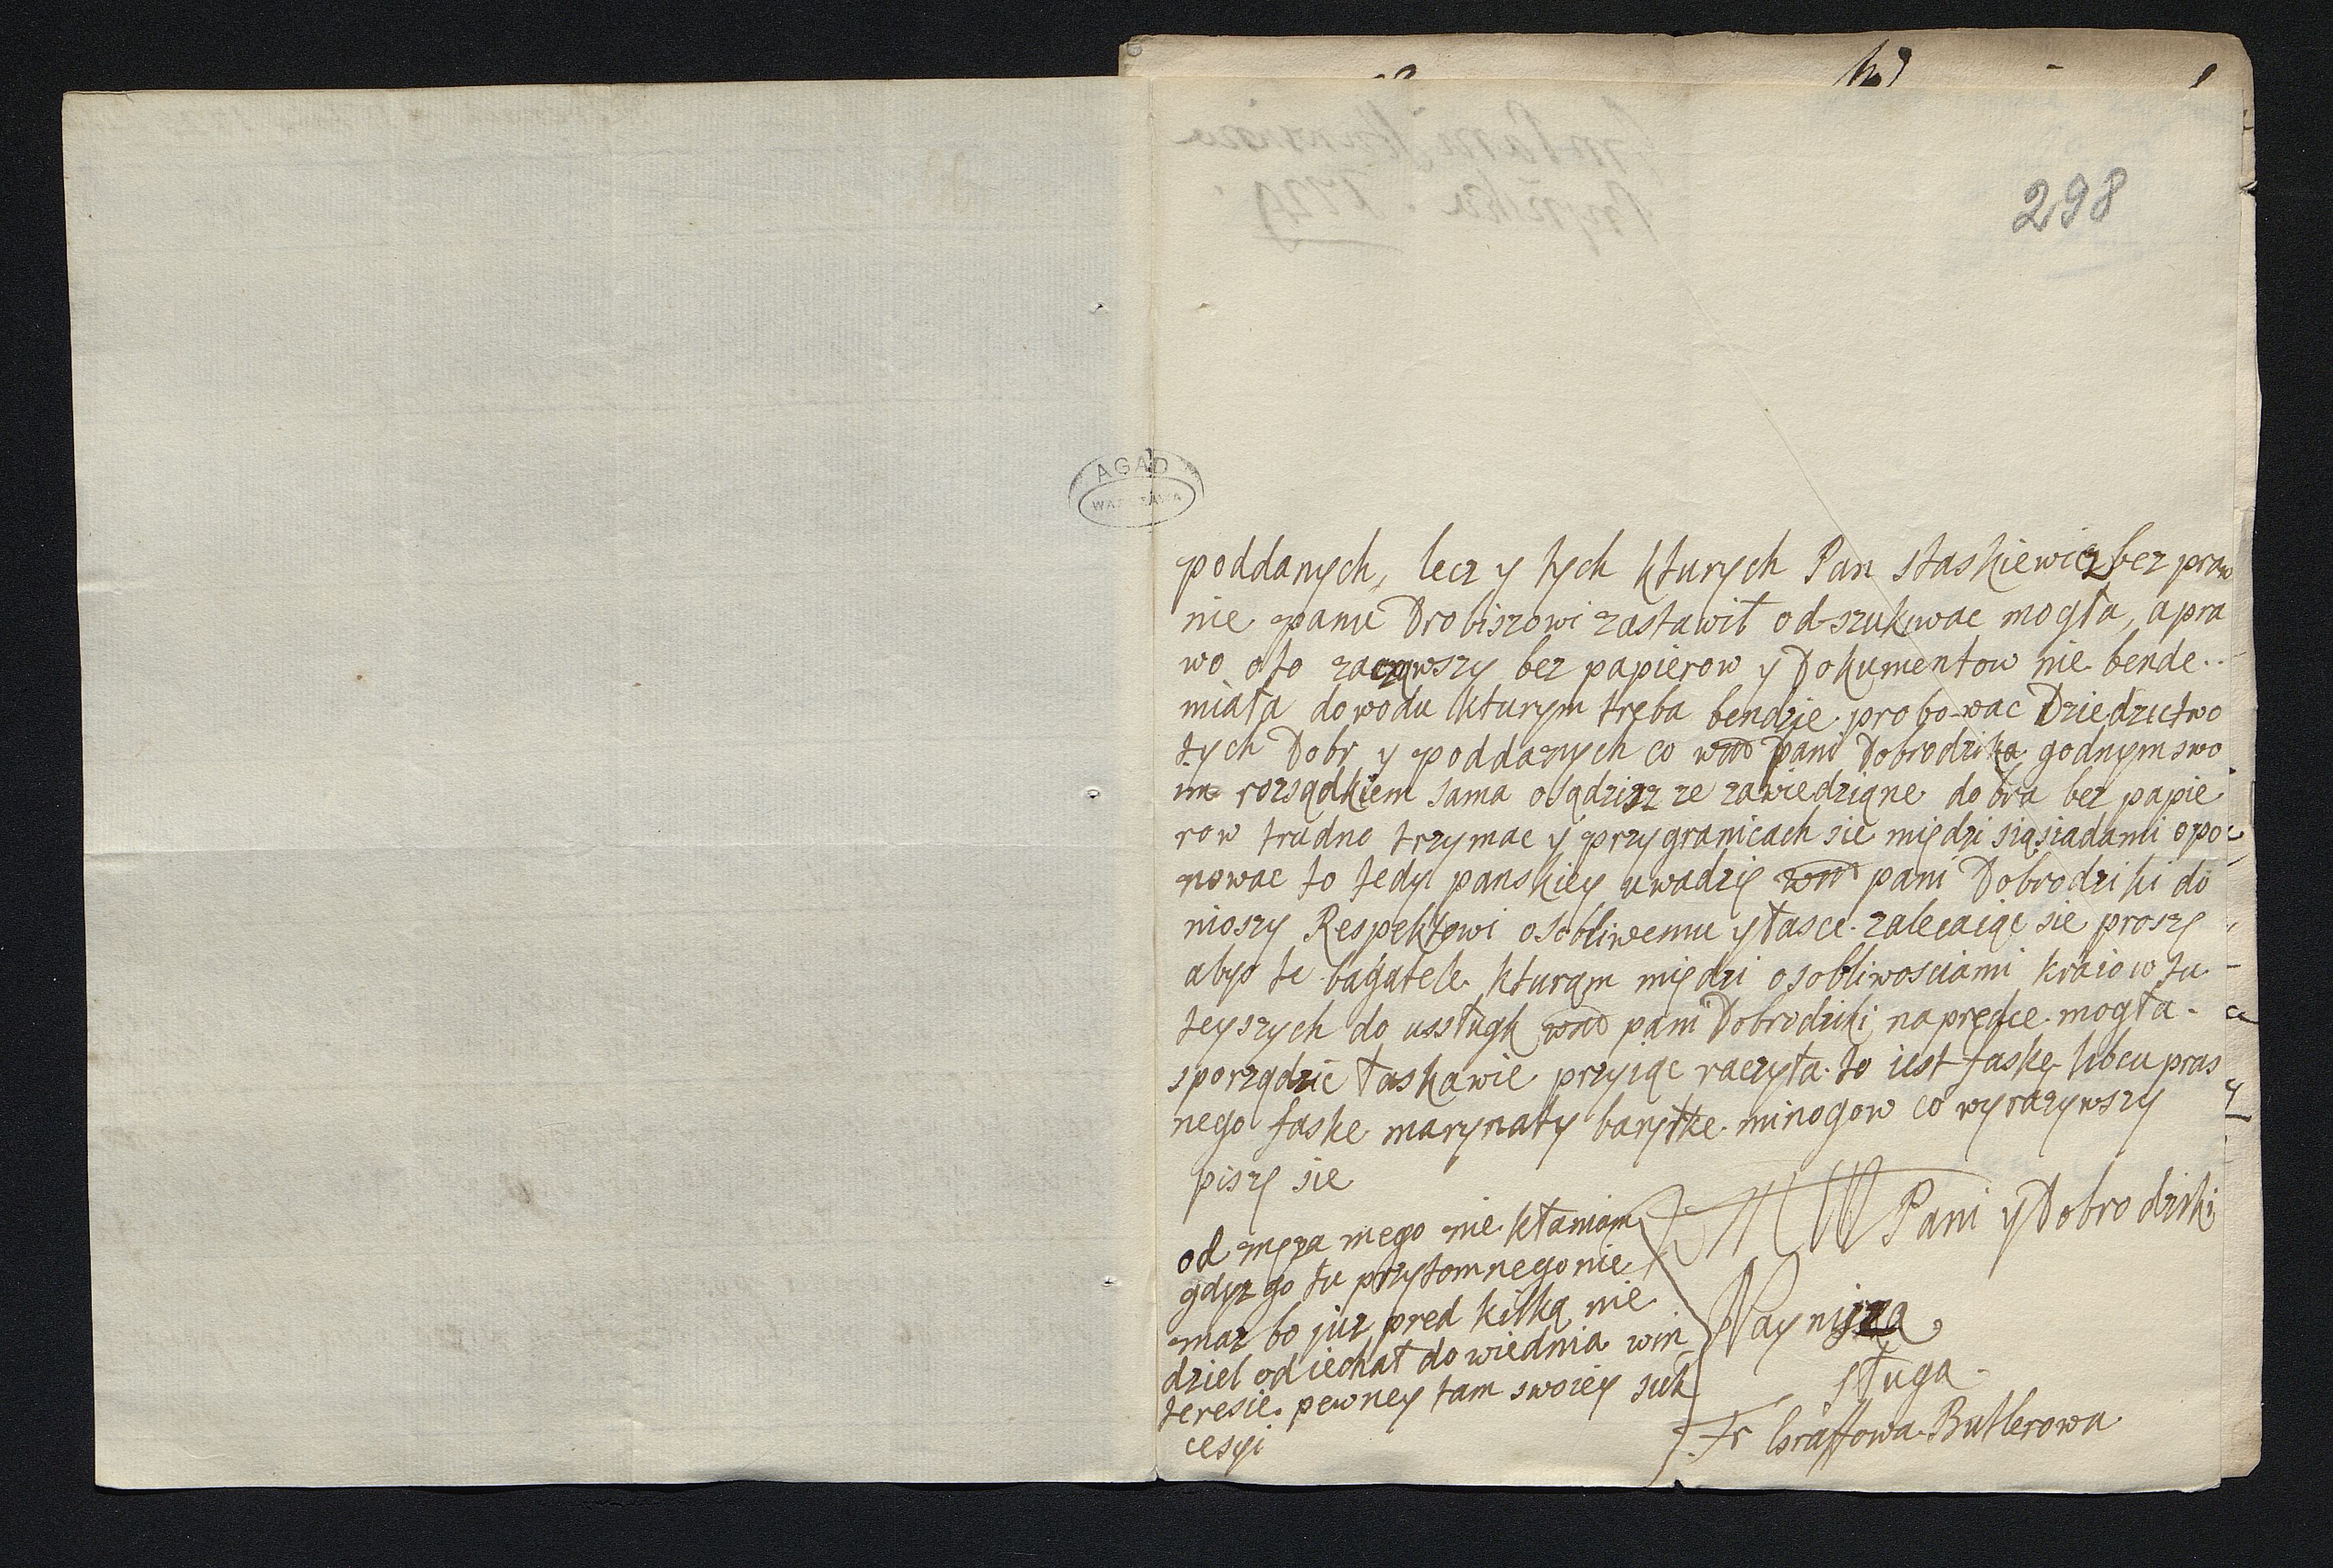 298
AGAD
WARSZAWA
poddanych, lecz y tych kturych Pan Staskiewicz bez praw
nie panu Drobiszowi zastawił odszukiwac mogła, a pra
wo oto zacząwszy bez papierow y Dokumentow nie bende
miała dowodu kturym tręba bendzie probowac Dziedzictwo
tych Dobr y poddanych co wmd pani Dobrodzika godnym swo
im rozsądkiem sama osądzisz ze zawiedziane dobra bez papie
row trudno trzymac y przygranicach sie międzi siąsiadami opo
nowac to tedy panskiey uwadzię wmd pani Dobrodziki do
nioszy Respektowi osobliwemu y łasce zalecaiąc sie proszę
abys te bagatele kturąm międzi osobliwosciami kraiow tu
teyszych do ussługk wmd pani Dobrodziki naprędce mogła
sporządzic łaskawie przyiąc raczyła to iest faskę łubcu pras
nego faske marynaty baryłke minogow co wyrazywszy
piszę sie
MW Pani y Dobrodziki
Naynisza
sługa
Fr Graffowa Butlerowa
od męza mego nie kłaniam
gdyz go tu przytomnego nie
masz bo juz pred kilką nie
dziel odiechał do wiednia win
teresie pewney tam swoiey suk
cesyi